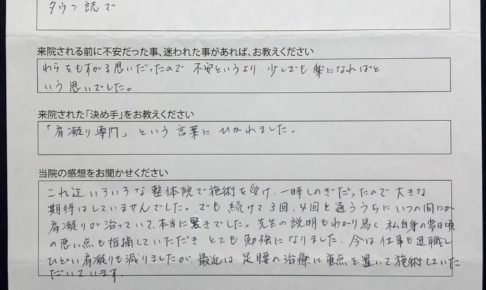 タウン誌で
来院される前に不安だった事、迷われた事があれば、お教えください
わらをもすがる思いだったので 不安というより、少しでも楽になればと
いう思いでした。
来院された「決め手」をお教えください
「肩凝り専門」という言葉にひかれました。
当院の感想をお聞かせください
これ迄いろいろな整体院で施術を受け、一時しのぎだったので大きな
期待はしていませんでした。でも続けて3回、4回と通ううちにいつの間にか
肩凝りが治っていて、本当に驚きでした。先生の説明もわかり易く、私自身の常日頃
の悪い点も指摘していただき とても勉強になりました。今は仕事も退職し
ひどい肩凝りも減りましたが、最近は足腰の治療に重点を置いて施術していた
だいています